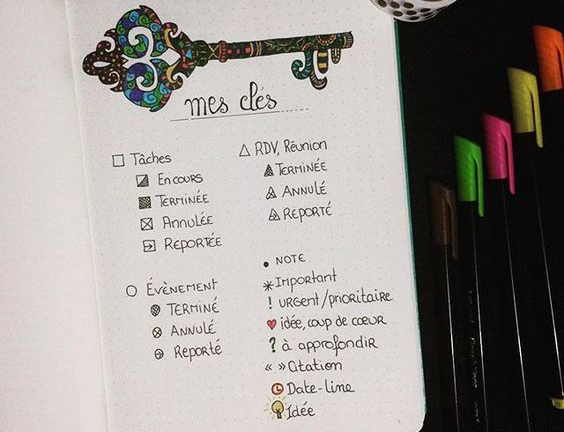 mes clés
Tâches
En cours
Terminée
Annulée
Reportée
Évènement
Terminé
Annulé
Reporté
RDV, Réunion
Terminée
Annulé
Reporté
NOTE
Important
! urgent/prioritaire
idée, coup de cœur
? à approfondir
« » Citation
Date-line
Idée